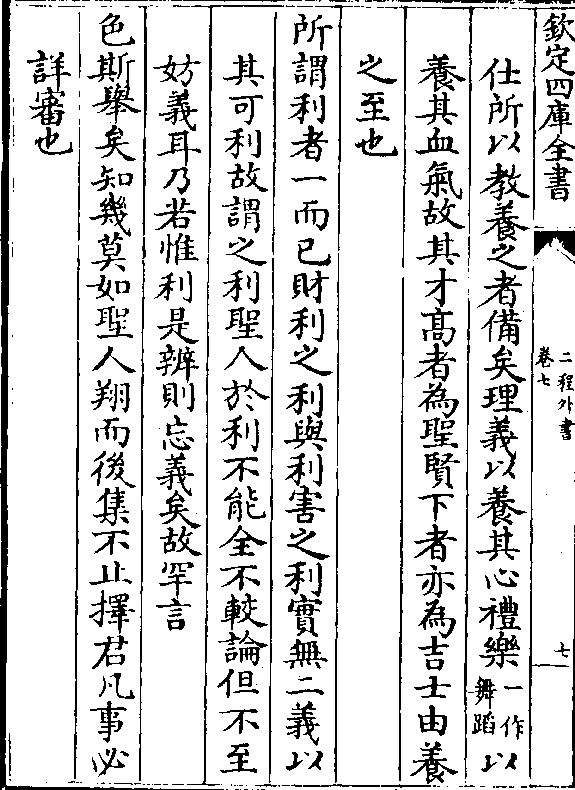 欽定四庫全書
二程外書
卷七
七
仕所以教養之者備矣理義以養其心禮樂一作舞蹈以
養其血氣故其才髙者為聖賢下者亦為吉士由養
之至也
所謂利者一而已財利之利與利害之利實無二義以
其可利故謂之利聖人於利不能全不較論但不至
妨義耳乃若惟利是辨則忘義矣故罕言
色斯舉矣知幾莫如聖人翔而後集不止擇君凡事必
詳審也